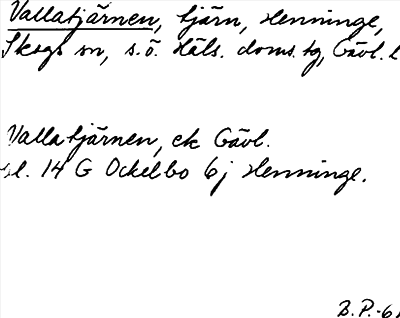 Vallatjärnen, tjärn, Henninge,
Skogs sn, s.ö. Häls. doms.tg, Gävl. l
Vallatjärnen, ek Gävl.
bl. 14 G Ockelbo 6j Henninge.
B.P.-61